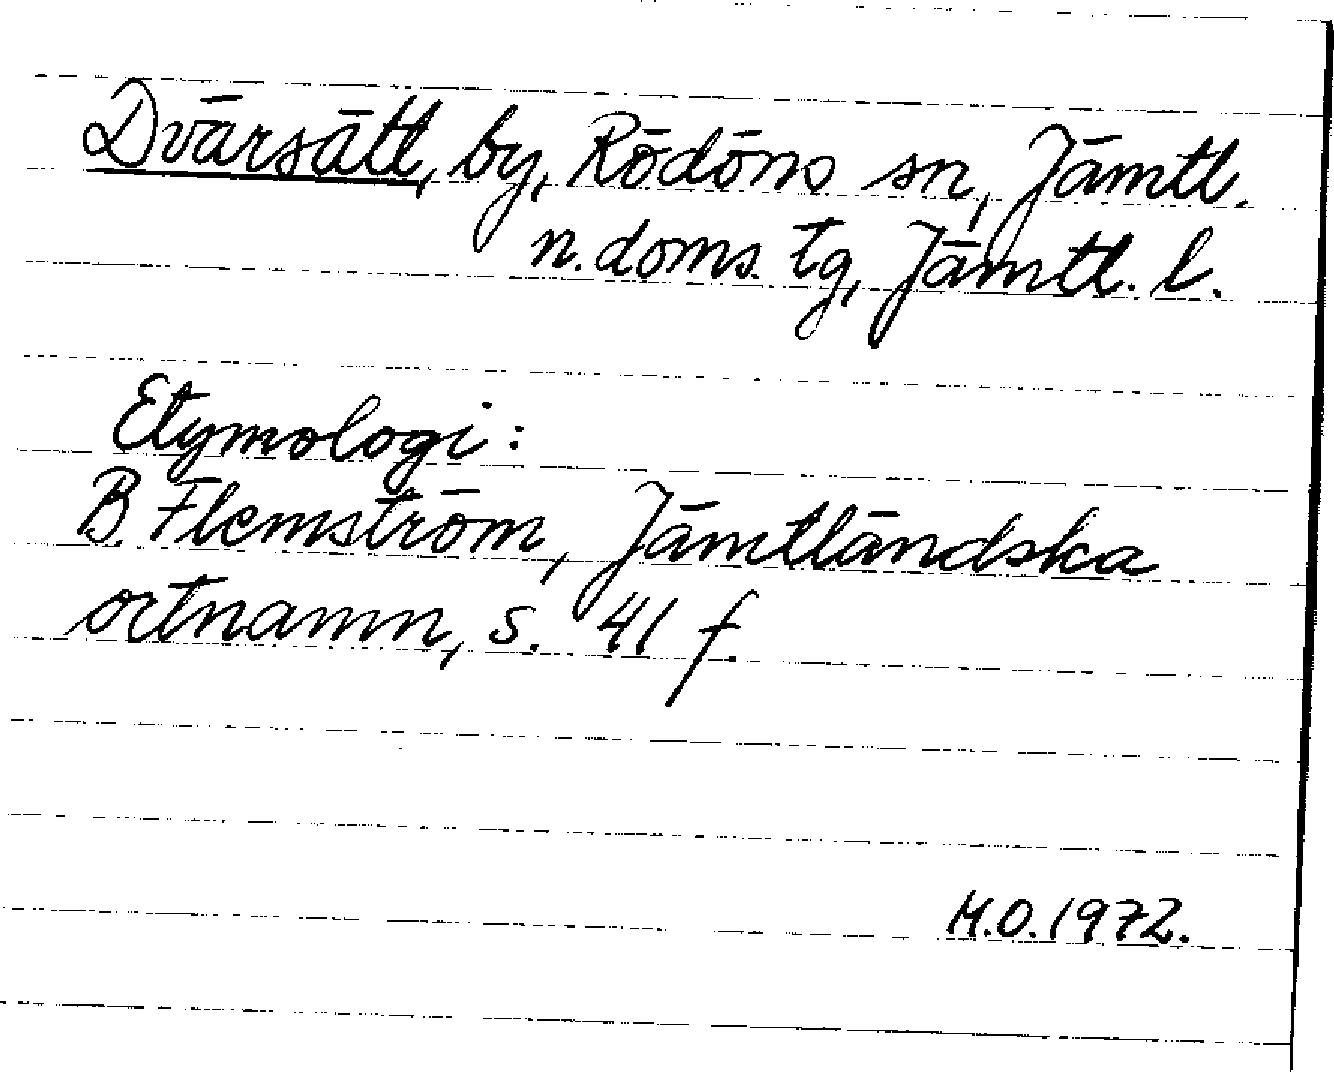 Dvärsätt, by, Rödöns sn, Jämtl.
n. doms. tg, Jämtl. l.
Etymologi:
B. Flemström, Jämtländska
ortnamn, s. 41 f.
M.O. 1972.